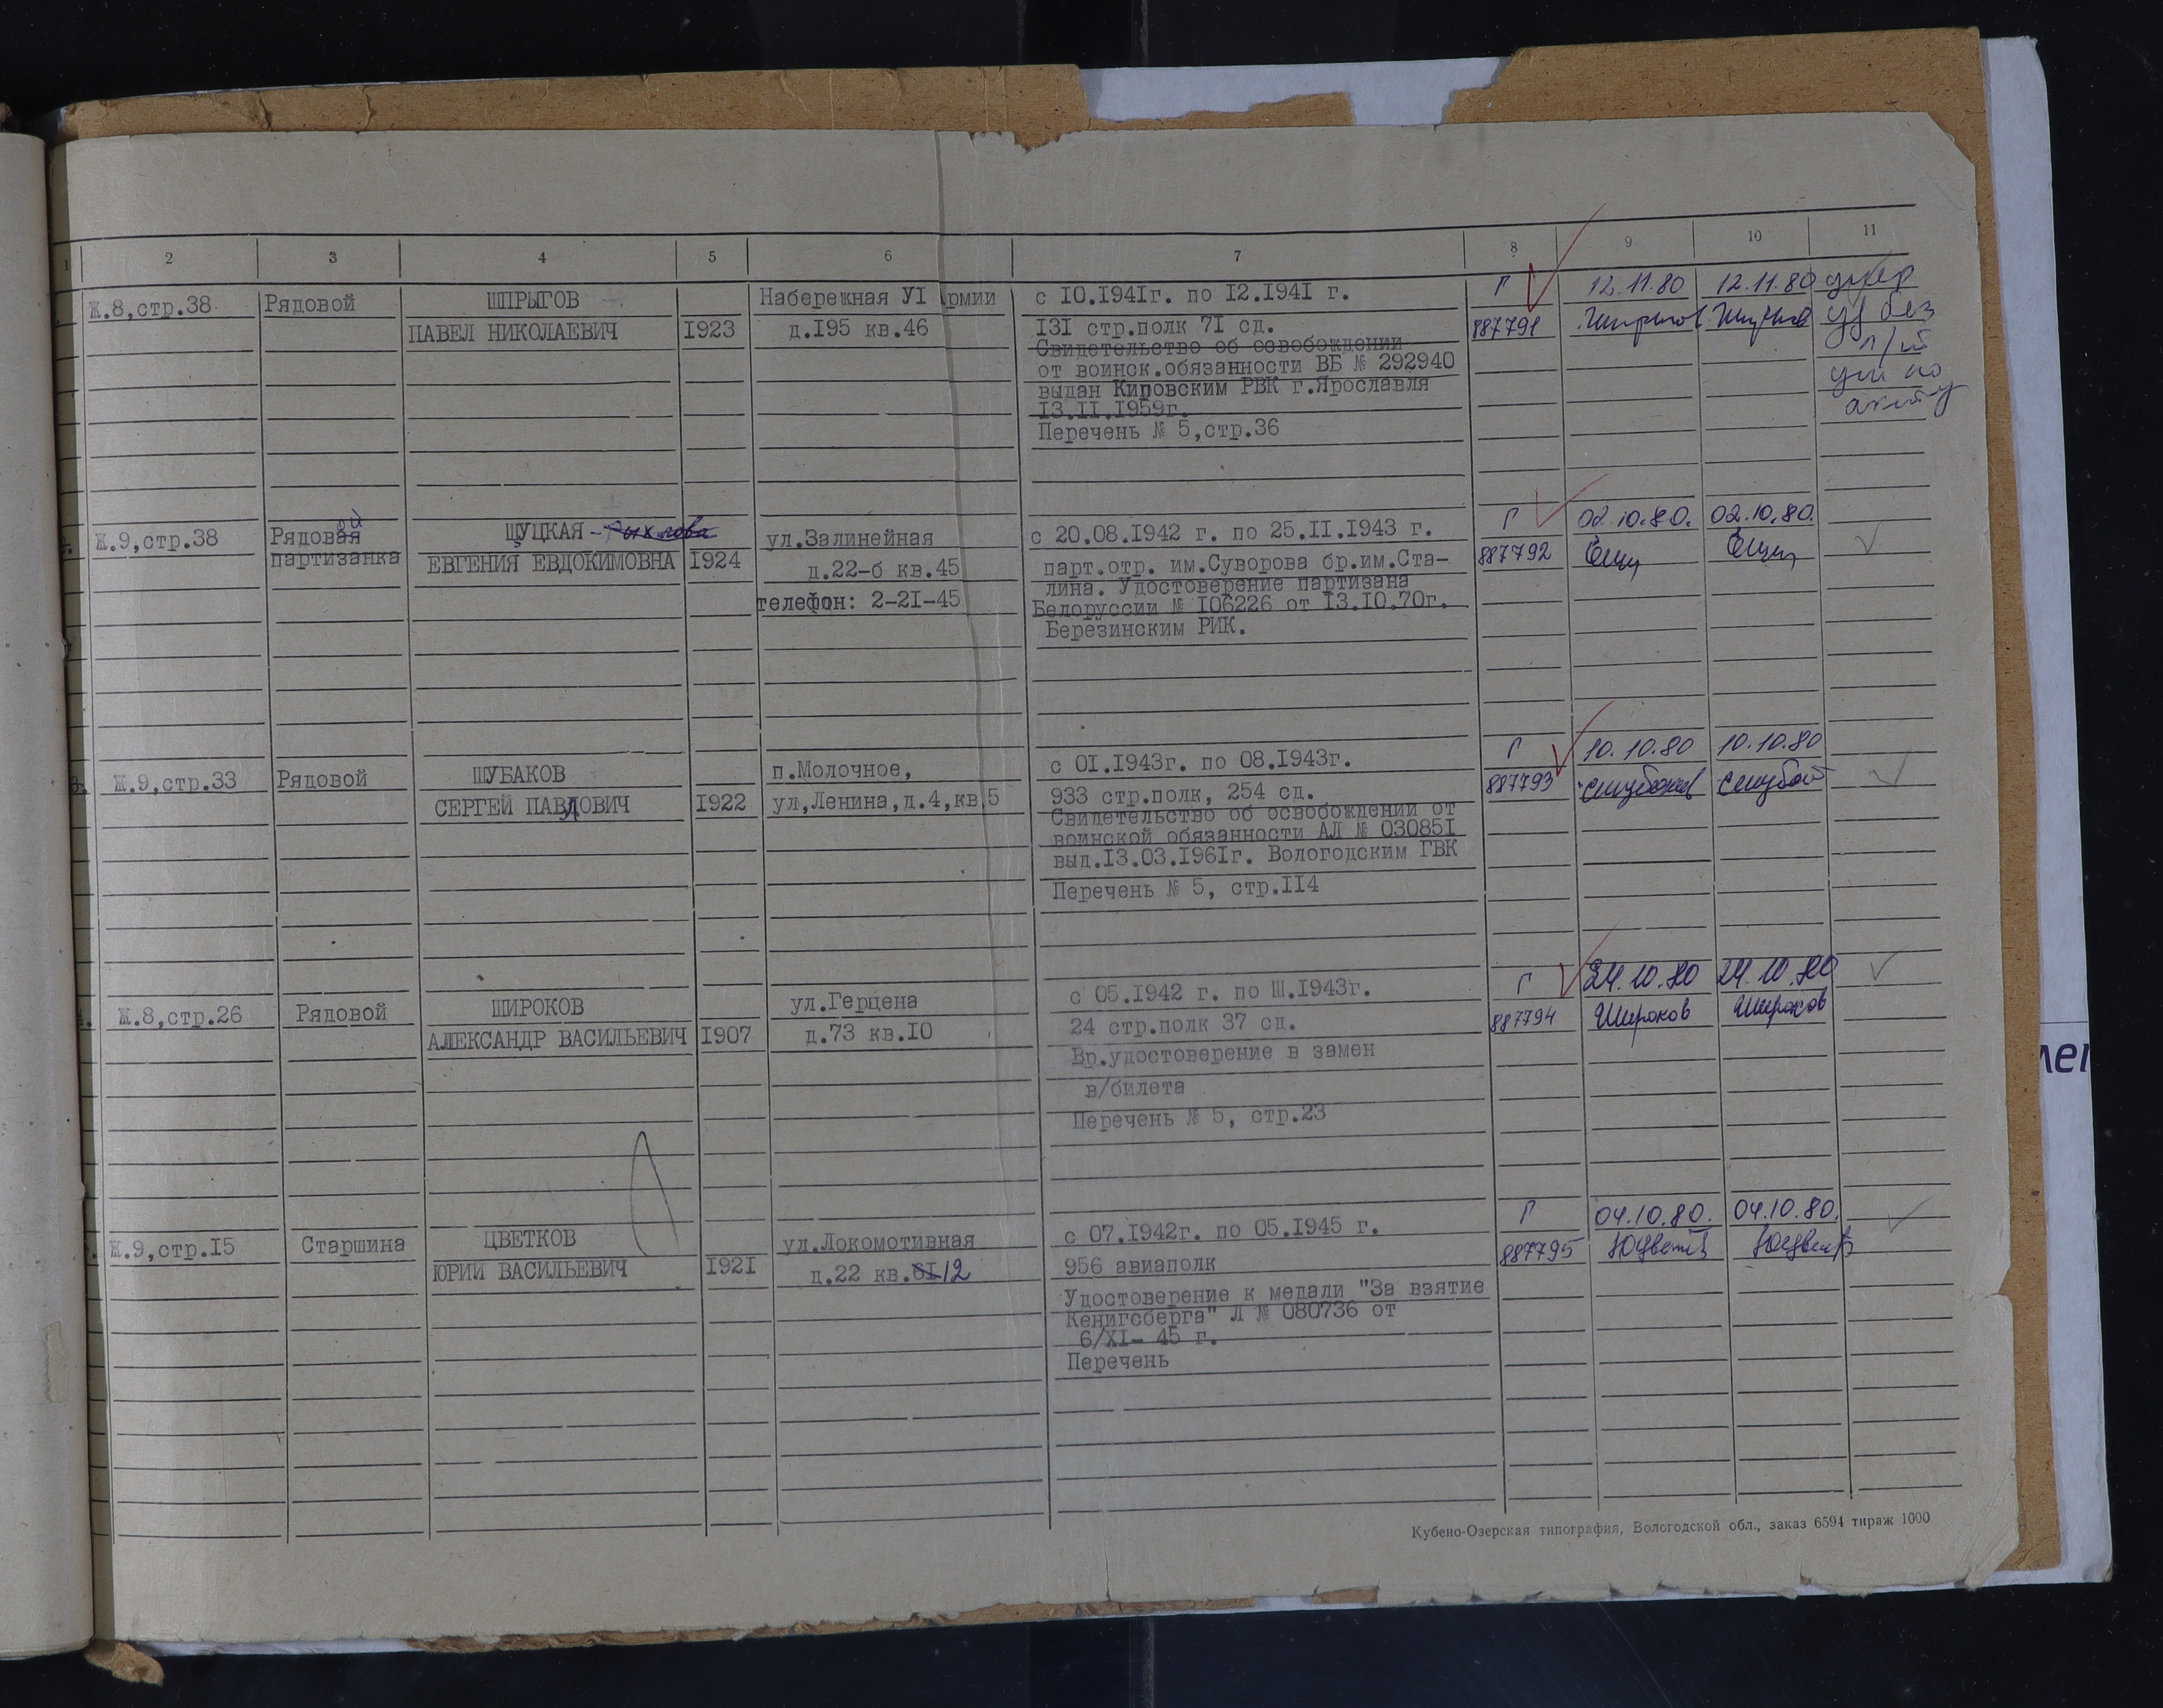 1 2 3 4 5 6 7 8 9 10 11
Ж.8,стр.38 Рядовой ШПРЫГОВ Набережная УI Армии с IO.I94Iг. по I2.I94I г. Г 12.11.80 12.11.80 умер
ПАВЕЛ НИКОЛАЕВИЧ I923 д.I95 кв.46 I3I стр.полк 7I сд. 887791 уд без
Свидетельство об освобождении
от воинск.обязанности ВБ № 292940
выдан Кировским РВК г.Ярославля
I3.II.I959г.
Перечень № 5,стр.36
ун по
акту
Ж.9,стр.38 Рядовой ШУЦКАЯ - ул.Залинейная с 20.08.I942 г. по 25.II.I943 г. Г 02.10.80. 02.10.80.
партизанка ЕВГЕНИЯ ЕВДОКИМОВНА I924 д.22-б кв.45 парт.отр. им.Суворова бр.им.Ста- 887792 ЕШуц ЕШуц
лина. Удостоверение партизана
телефон: 2-2I-45 Белоруссии № I06226 от I3.IO.70г.
Березинским РИК.
Ж.9,стр.33 Рядовой ШУБАКОВ п.Молочное, с OI.I943г. по 08.I943г. Г 10.10.80 10.10.80
СЕРГЕЙ ПАВЛОВИЧ I922 ул,Ленина,д.4,кв,5 933 стр.полк, 254 сд. 887793 СШубаков СШубаков
Свидетельство об освобождении от
воинской обязанности АЛ № 03085I
выд.I3.03.I96Iг. Вологодским ГВК
Перечень № 5, стр.II4
Ж.8,стр.26 Рядовой ШИРОКОВ ул.Герцена с 05.I942 г. по Ш.I943г. Г 24.10.80 24.10.80
АЛЕКСАНДР ВАСИЛЬЕВИЧ I907 д.73 кв.IO 24 стр.полк 37 сд. 887794 Широков Широков
Вр.удостоверение в замен
в/билета
Перечень № 5, стр.23
Ж.9,стр.I5 Старшина ЦВЕТКОВ ул.Локомотивная с 07.I942г. по 05.I945 г. Г 04.10.80. 04.10.80.
ЮРИЙ ВАСИЛЬЕВИЧ I92I д.22 кв.6I 12 956 авиаполк 887795 ЮЦветк ЮЦветк
Удостоверение к медали "За взятие
Кенигсберга" Л № 080736 от
6/XI- 45 г.
Перечень
Кубено-Озерская типография, Вологодской обл., заказ 6594 тираж 1000